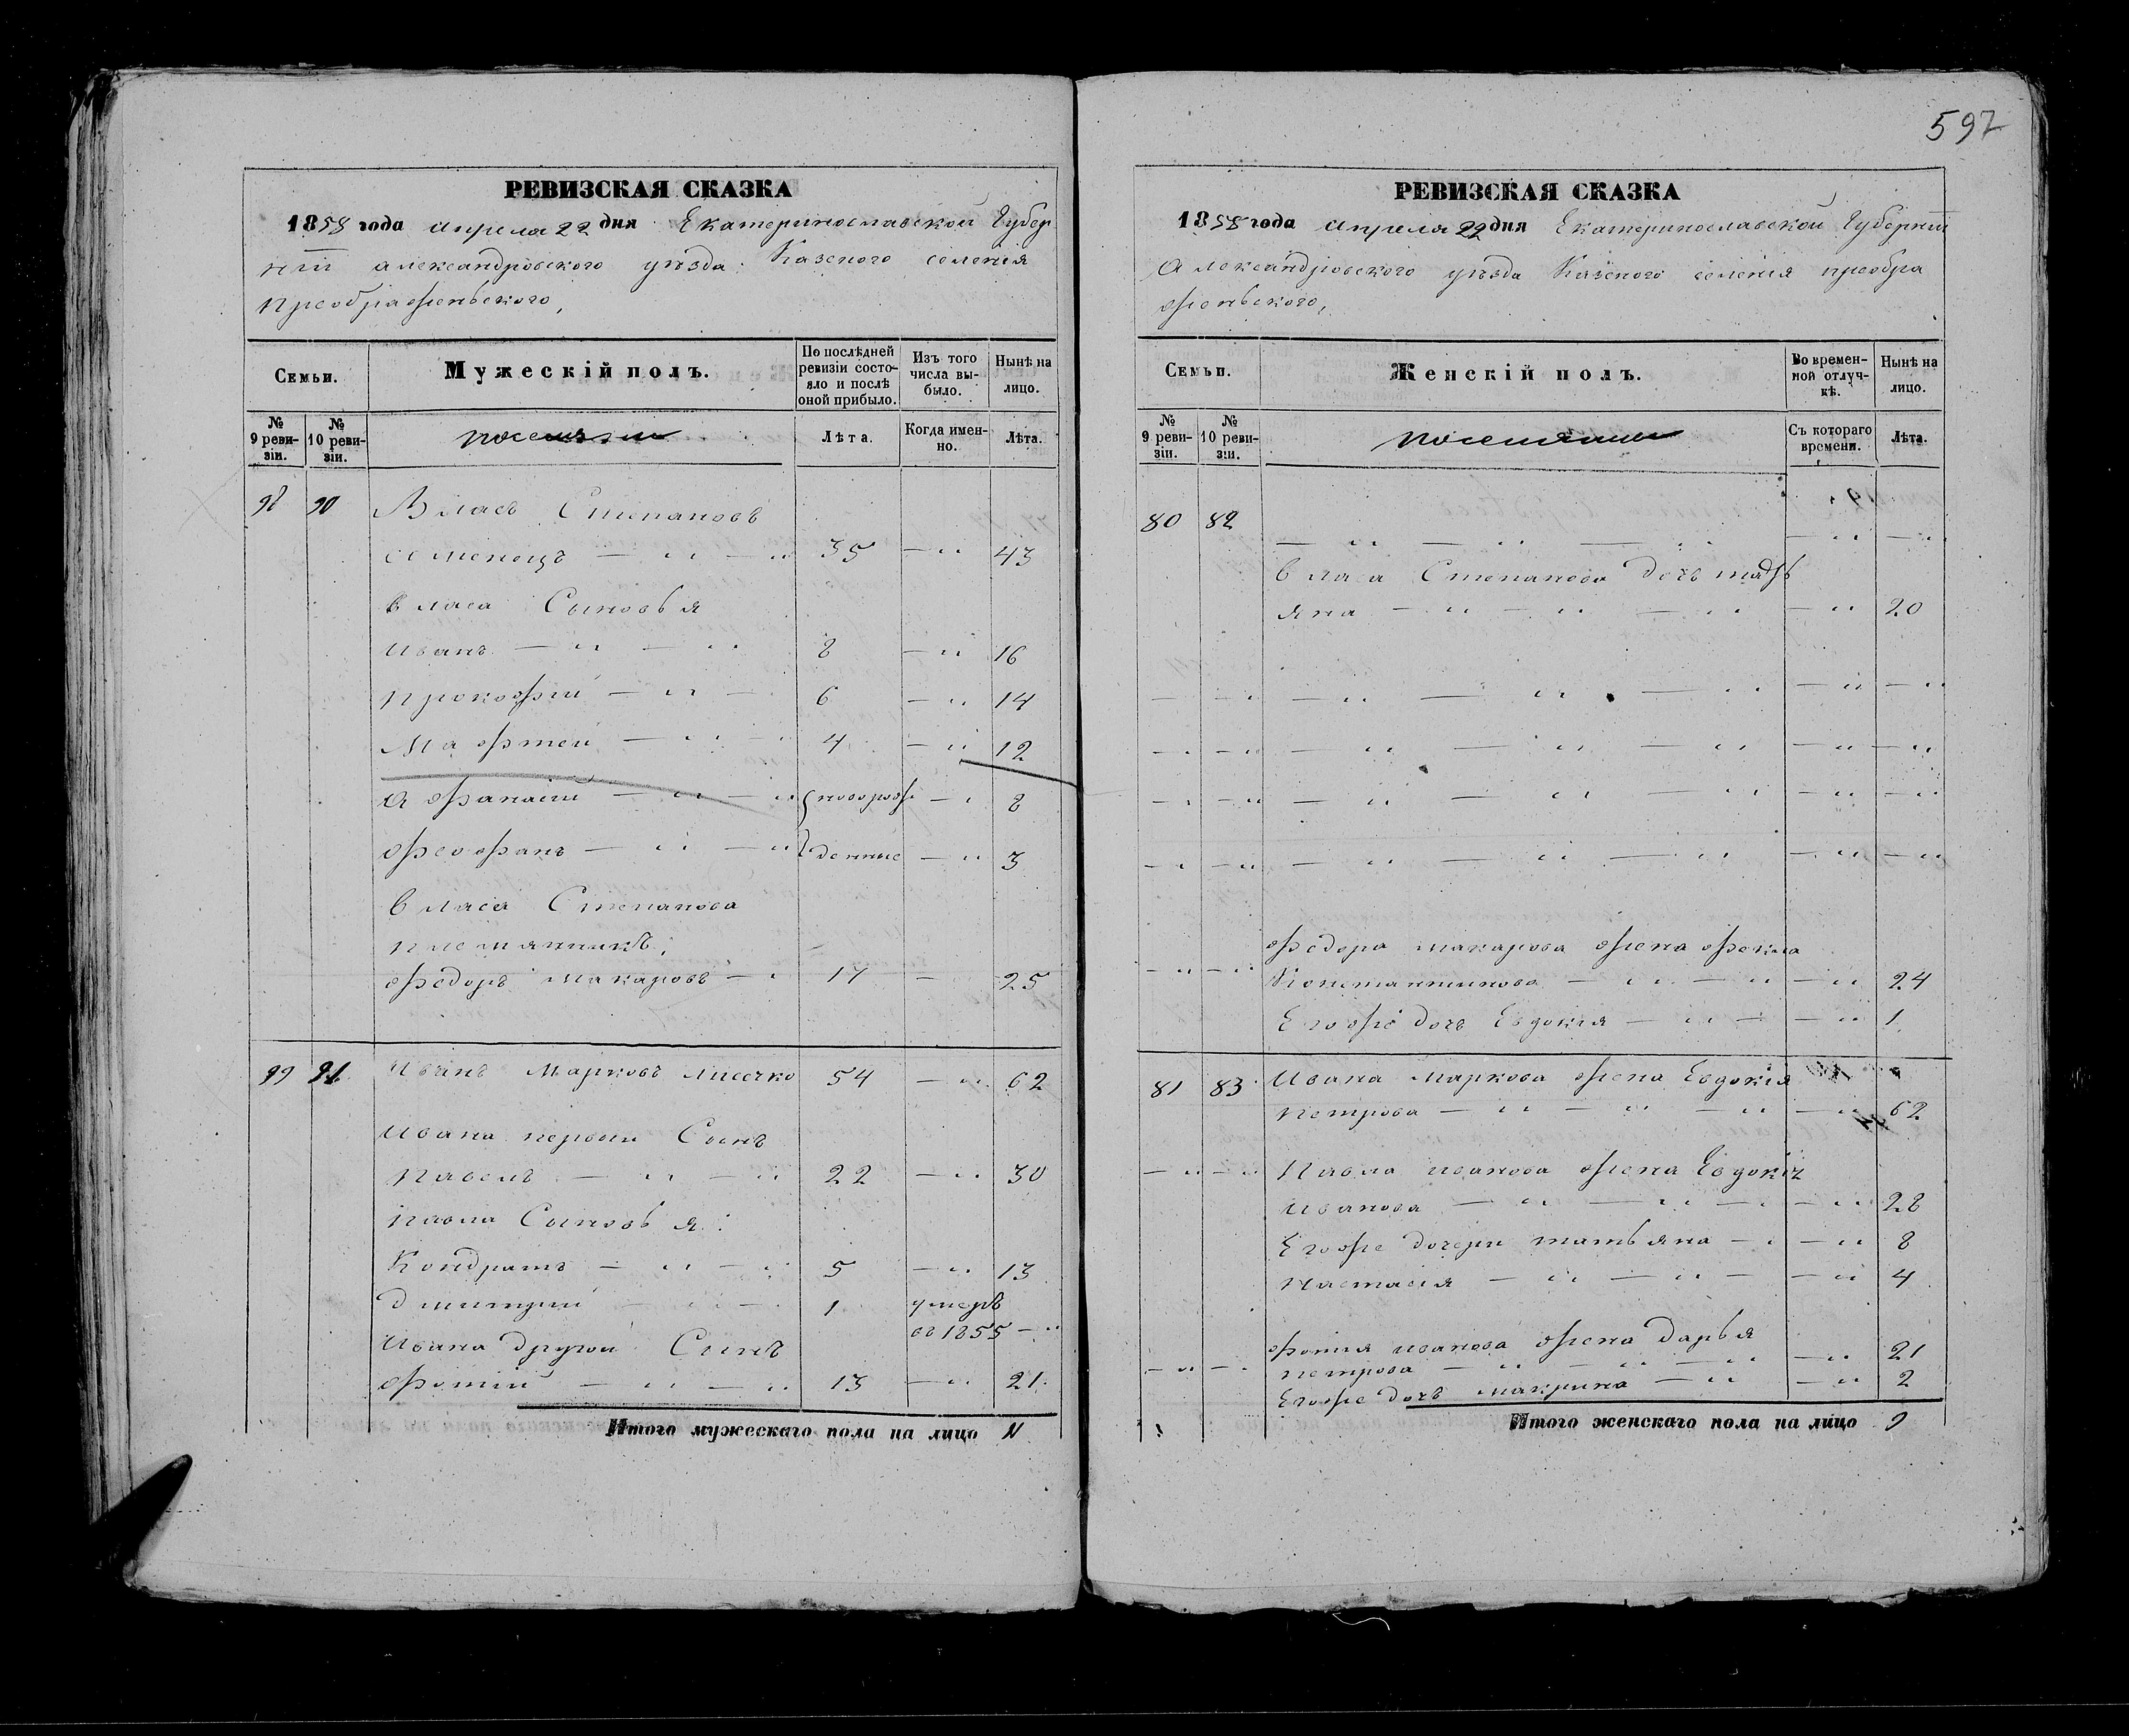 597
РЕВИЗСКАЯ СКАЗКА
1858 года апреля 22 дня Екатеринославской Губер
нии александровского уѣзда Казеного селенія
преображенъского,
Семьи.
Мужескій полъ.
По послѣдней ревизіи состояло и послѣ оной прибыло.
Изъ того числа выбыло.
Нынѣ на лицо.
№ 9 ревизіи.
№ 10 ревизіи.
поселяне
Лѣта.
Когда именно.
Лѣта.
98 90 Власъ Степановъ
— " — " 35 — " 43
власа Сыновья
иванъ — " — " 8 — " 16
прокофій — " — 6 — " 14
Мафтей — " — 4 — " 12
Афанасій — " — " новорож — " 8
феофанъ — " — " денные — " 3
власа Степанова
племянникъ,
федоръ макаровъ — " 17 — 25
99 91 Иванъ Марковъ Лисечко 54 — " 62
Ивана первый Сынъ
павелъ — " — " 22 — " 30
павла Сыновья:
Кондратъ — " — " 5 — " 13
дмитрий — " — 1 умеръ
въ 1855 — "
Ивана другой Сынъ
фотій — " — " 13 — " 21.
Итого мужескаго пола на лицо 11
РЕВИЗСКАЯ СКАЗКА
1858 года апреля 22 дня Екатеринославской Губернии
Александровского уѣзда Казеного селенія преобра
женьского,
Семьи.
Женскій полъ.
Во временной отлучкѣ.
Нынѣ на лицо.
№ 9 ревизіи.
№ 10 ревизіи.
поселяне
Съ котораго времени.
Лѣта.
80 82
— " — " — " — " — "
власа Степанова дочь тать
яна — " — " — " — " 20
— " — " — " — " — " — " — "
— " — " — " — " — " — " — "
— " — " — " — " — " — " — "
— " — " — " — " — " — " — "
федора макарова жена фекла
— " — " Константинова — " — " — " 24
Егоже дочь Евдокія — " — — " 1
81 83 Ивана маркова жена Евдокія
петрова — " — " — " — " 62
— " — " Павла иванова жена Евдокія
Иванова — " — " — " — " 28
Егоже дочери татьяна — " — " 8
настасія — " — " — — " 4
фотия иванова жена дарья
— " — " петрова — " — " — " — " 21
Егоже дочь макрина — " — " 2
Итого женскаго пола на лицо 9